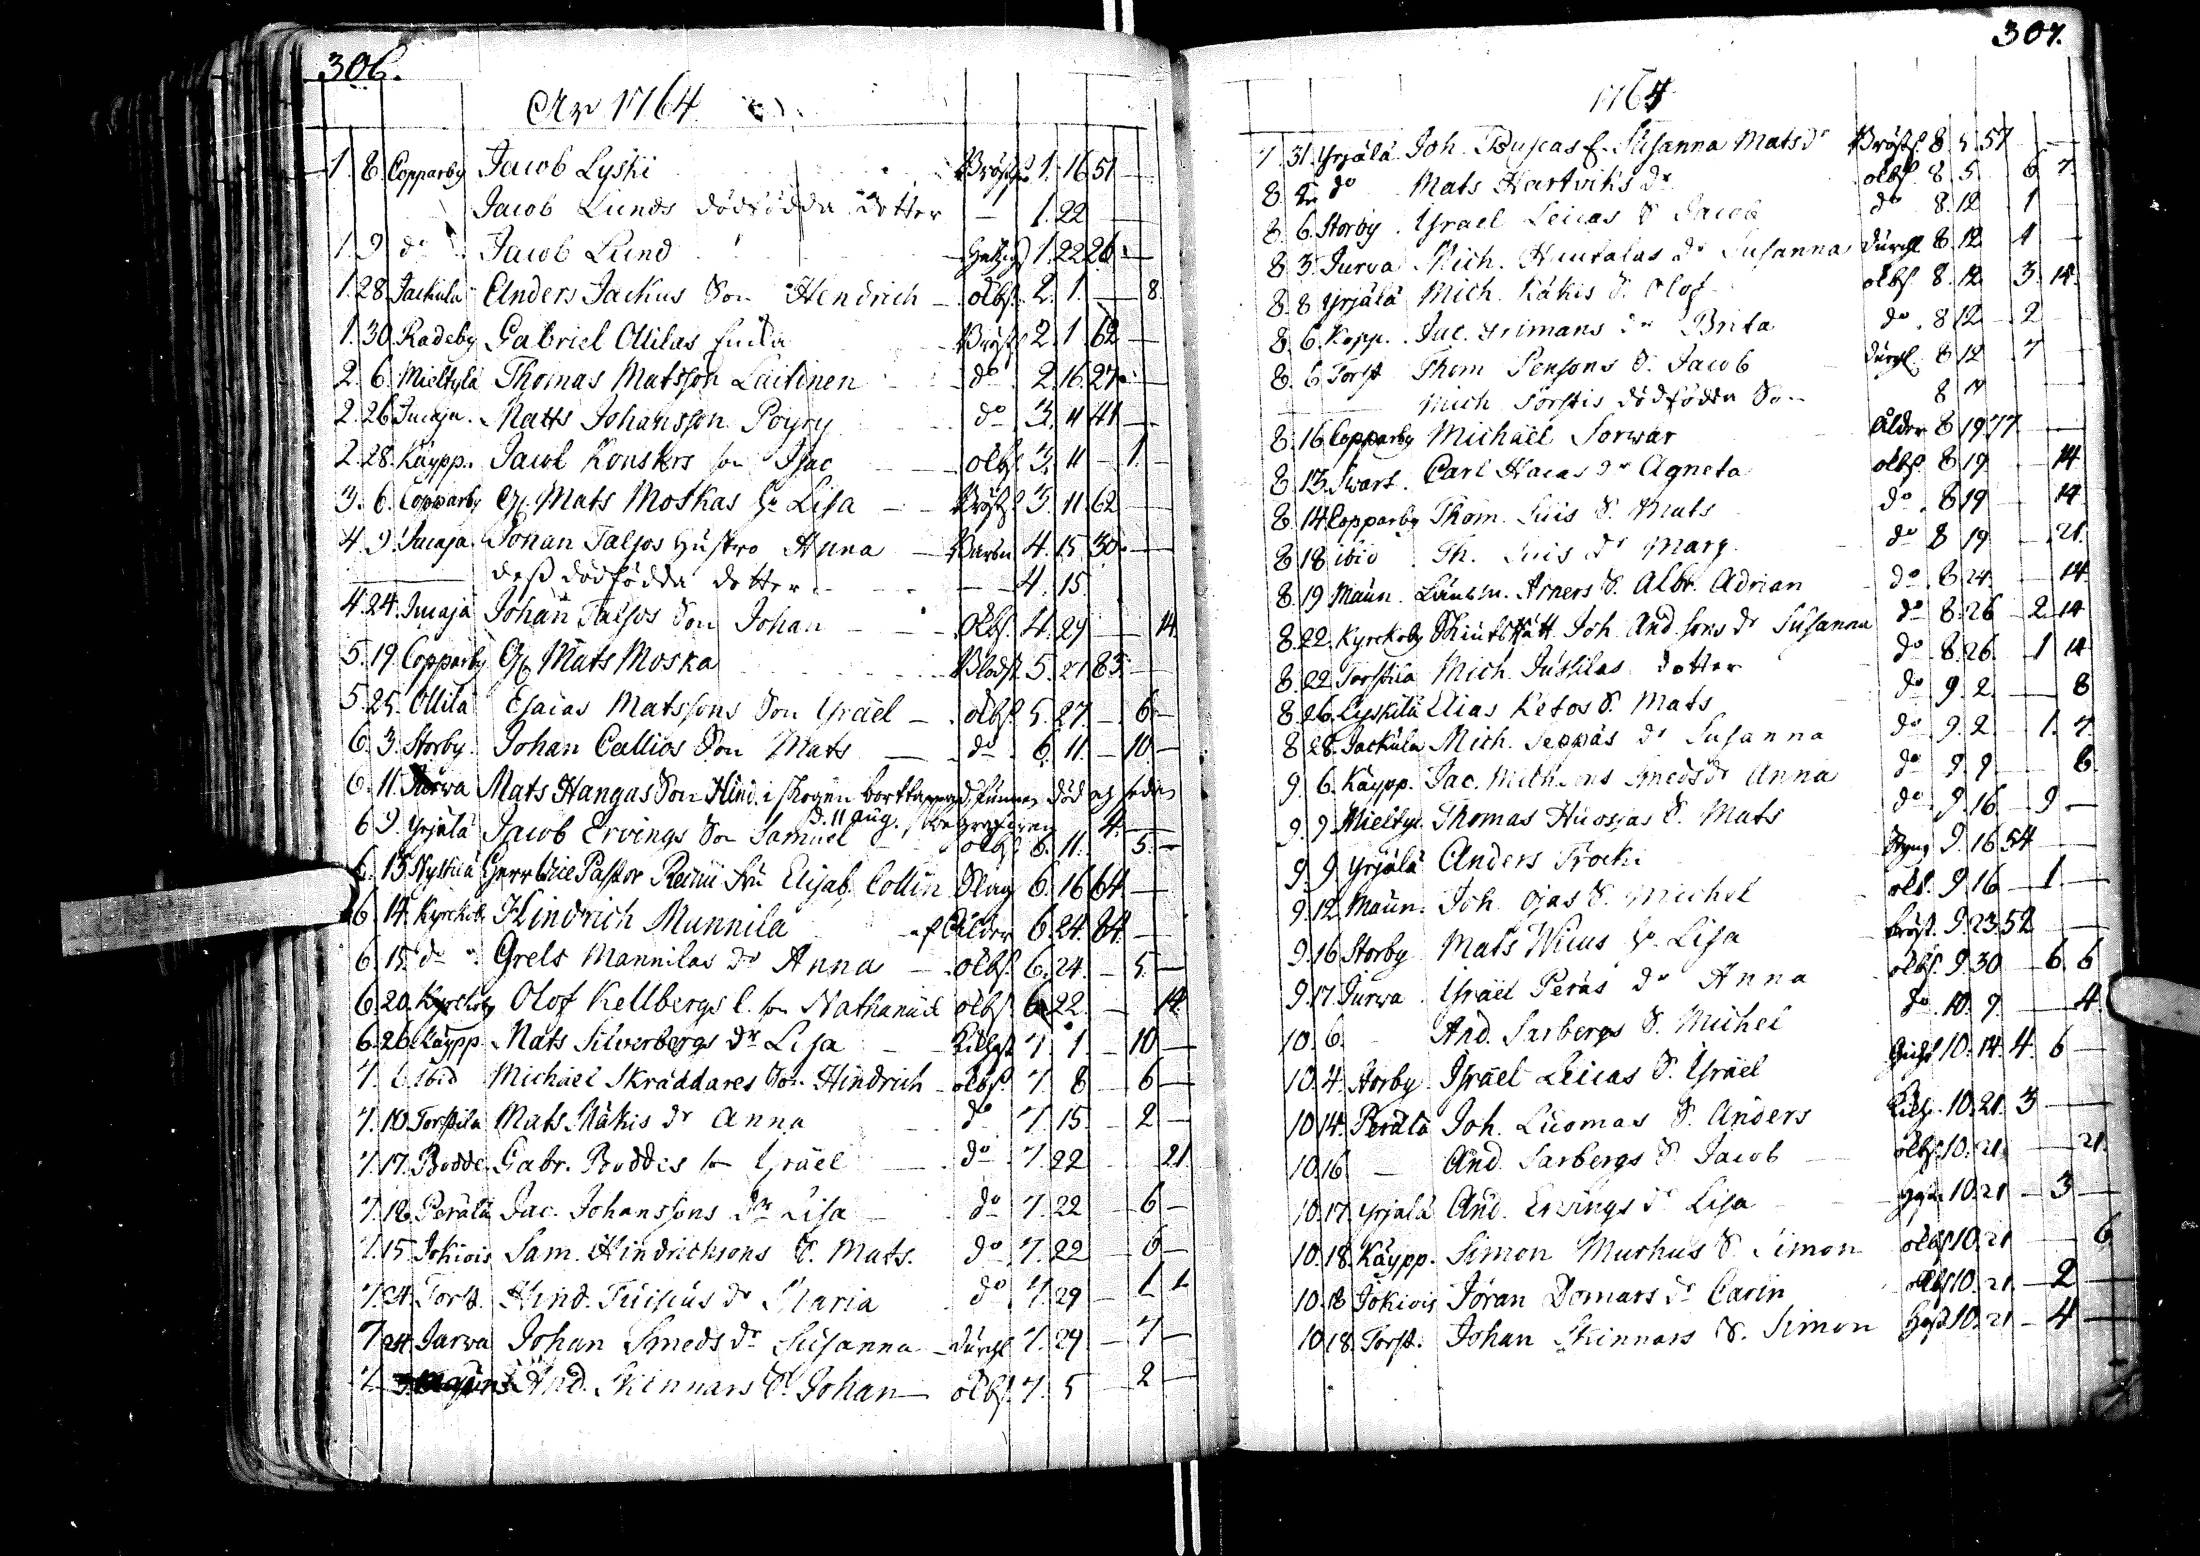 306.
År 1764
1. 8. Copparby Jacob Lyski Bröstsj. 1. 16 51 —
Jacob Lunds dödfödda dotter — 1. 22 —
1. 9 do Jacob Lund Hetsig 1. 22 26. —
1. 28. Jackula Anders Jackus Son Hendrich — olbs. 2. 1. — 8.
1. 30. Radeby Gabriel Ollilas Enka Bröst 2. 1. 62 —
2. 6. Mieltylä Thomas Matsson Laitinen do 2. 16. 27. —
2. 26. Matts Johansson Poyry do 3. 11 41 —
2. 28. Käypp. Jacob Konskers son Isac — olbs. 3. 11 — 1. —
3. 6. Copparby Mats Moskas h. Lisa — Bröst 3. 11. 62 —
4. 9. Johan Taljos Hustro Anna — Barn 4. 15. 30. —
dess dödfödda dotter — 4. 15.
4. 24. Johan Taljos Son Johan — Olbs. 4. 29 — 14.
5. 19. Copparby Mats Moska 5. 27 83 —
5. 25. Ollila Esaias Matssons Son Israel — olbs. 5. 27. — 6. —
6. 3. Storby. Johan Callios Son Mats — do 6. 11. — 10. —
6. 11. Jurwa Mats Hangas Son Hind. i skogen borttappad, funnen död och sedan
d. 11 aug. begrafven 4. —
6 9. Yrjälä Jacob Ervings Son Samuel olbs. 6. 11. 5. —
6. 13. Herr Vice Pastor Fru Elisab. Collin Slag 6. 16 64. —
6. 14. Kyrckob. Hindrich Mannila af Ålder 6. 24. 84. —
6. 15. do Grels Mannilas dr Anna — olbs. 6. 24. — 5. —
6. 20. Kyrckoby Olof Kellbergs l. son Nathanael olbs. 6. 22. — 14.
6. 26. Käypp. Mats Silverbergs dr Lisa 7. 1. — 10 —
7. 6. ibid Michael Skräddares Son Hindrich — olbs. 7. 8 — 6 —
7. 10. Torstila Mats Mäkis dr Anna do 7. 15. — 2 —
7. 17. Bodde Gabr. Boddes son Israel — do 7. 22 21
7. 18. Perälä Jac. Johanssons dr Lisa — do 7. 22 — 6 —
7. 15. Jokiois Sam. Hindrichsons S. Mats. do 7. 22 — 6 —
7. 24. Torst. Hind. dr Maria do 7. 29 — 1 1
7. 24. Jurwa Johan Smeds dr Susanna — durchl. 7. 29 — 7 —
7. And. Skinnars S. Johan — olbs. 7. 5 — 2 —
307.
1764
7. 31. Yrjälä Joh. E. Susanna Mats dr Bröst. 8 5 57 —
8. do Mats Hartviks dr olbs. 8. 5. 6. 7.
8. 6. Storby Israel Leicas S. Jacob do 8. 12 1 —
8. 3. Jurva Mich. dr Susanna durchl. 8. 12. 1 —
8. 8 Yrjälä Mich. Käkis S. Olof olbs. 8. 12. 3. 14.
8. 6. Kopp. Jac. Frimans dr Brita do. 8 12 — 2
8. 6. Torst Thom. Pensons S. Jacob — durchl. 8 12 7 —
Mich. Torstis dödfödda Son 8
8. 16. Copparby Michael Sorwar ålder 8 19 77 —
8. 13. Swart. Carl Hacas dr Agneta olbs. 8 19 — 14
8. 14. Copparby Thom. Suis S. Mats do 8 19 — 14.
8. 18. ibid Th. Suis dr Marg. do 8 19 — 21.
8. 19. Maun. Länsm. Arners S. Albr. Adrian do 8. 24. — 14.
8. 22. Kyrckoby Joh. And. sons dr Susanna do 8. 26 — 2 14
8. 22. Torstila Mich. dotter do 8. 26. 1 14
8. 26. Lyskilä Elias Ketos S. Mats do 9. 2. — 8
8 28. Jackula Mich. Seppäs dr Susanna do 9. 2 — 1. 7.
9. 6. Käypp. Jac. Smeds dr Anna do 9. 9 — 8.
9. 9. Mieltyl. Thomas Huosjas S. Mats do 9. 16. — 9 —
9. 9. Yrjälä Anders Trocki 9. 16 54 —
9. 12. Maun. Joh. Ojas S. Michel olbs. 9. 16 — 1 —
9. 16 Storby Mats h. Lisa bröst. 9. 23. 52 —
9. 17. Jurwa. Israel Peräs dr Anna olbs. 9. 30 — 6. 6
10. 6. And. Sarbergs S. Michel do 10. 7. — 4.
10. 4. Storby Israel Leicas S. Israel 10. 14. 4. 6 —
10 14. Perälä Joh. Luomas S. Anders 10. 21. 3 —
10. 16 — And. Sarbergs S. Jacob — olbs. 10. 21. — 21.
10. 17. Yrjälä And. Ervings dr Lisa 10. 21 — 3 —
10. 18. Käypp. Simon Murhus S. Simon olbs. 10. 21 — 6
10. 18. Jokiois Jöran Domars dr Carin olbs. 10. 21 — 2 —
10 18. Torst. Johan Skinnars S. Simon 10. 21 — 4 —